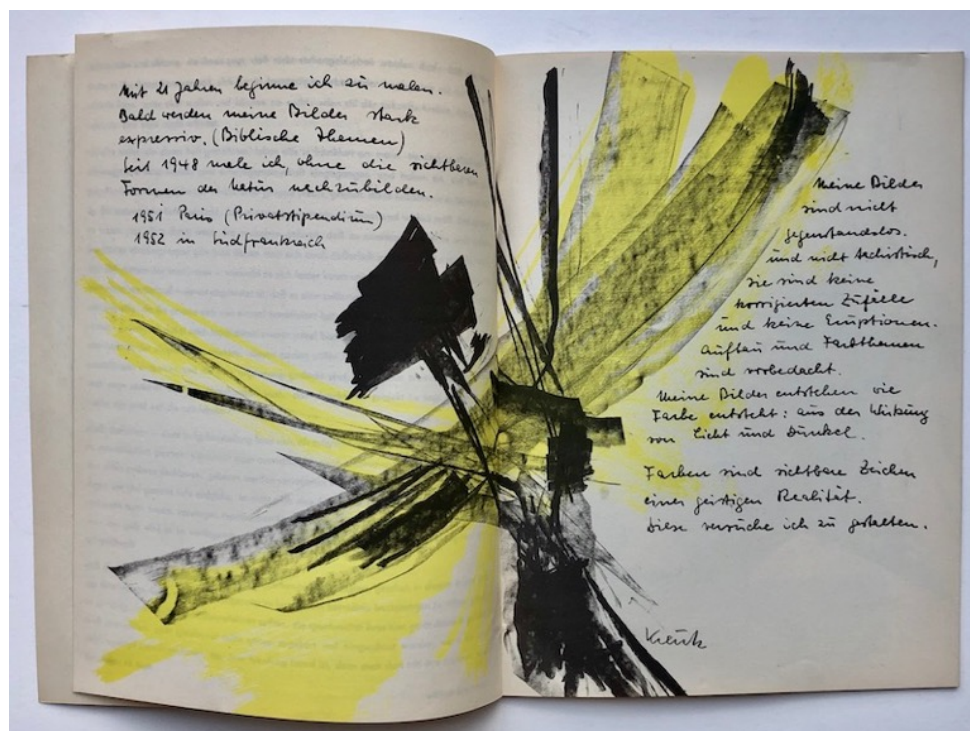 Mit 21 Jahren beginne ich zu malen.
Bald werden meine Bilder stark
expressiv. (Biblische Themen)
Seit 1948 male ich, ohne die sichtbaren
Formen der Natur nachzubilden.
1951 Paris (Privatstipendium)
1952 in Südfrankreich
Meine Bilder
sind nicht
gegenstandslos.
und nicht tachistisch,
sie sind keine
korrigierten Zufälle
und keine Eruptionen.
Aufbau und Farbthemen
sind vorbedacht.
Meine Bilder entstehen wie
Farbe entsteht: aus der Wirkung
von Licht und Dunkel.
Farben sind sichtbare Zeichen
einer geistigen Realität.
Diese versuche ich zu gestalten.